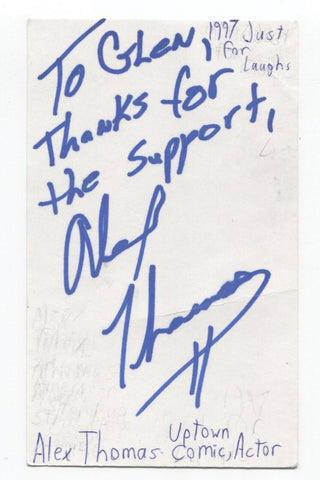 1997 Just
for
Laughs
To Glen,
Thanks for
the support,
Alex
Thomas
Uptown
Alex Thomas - Comic, Actor